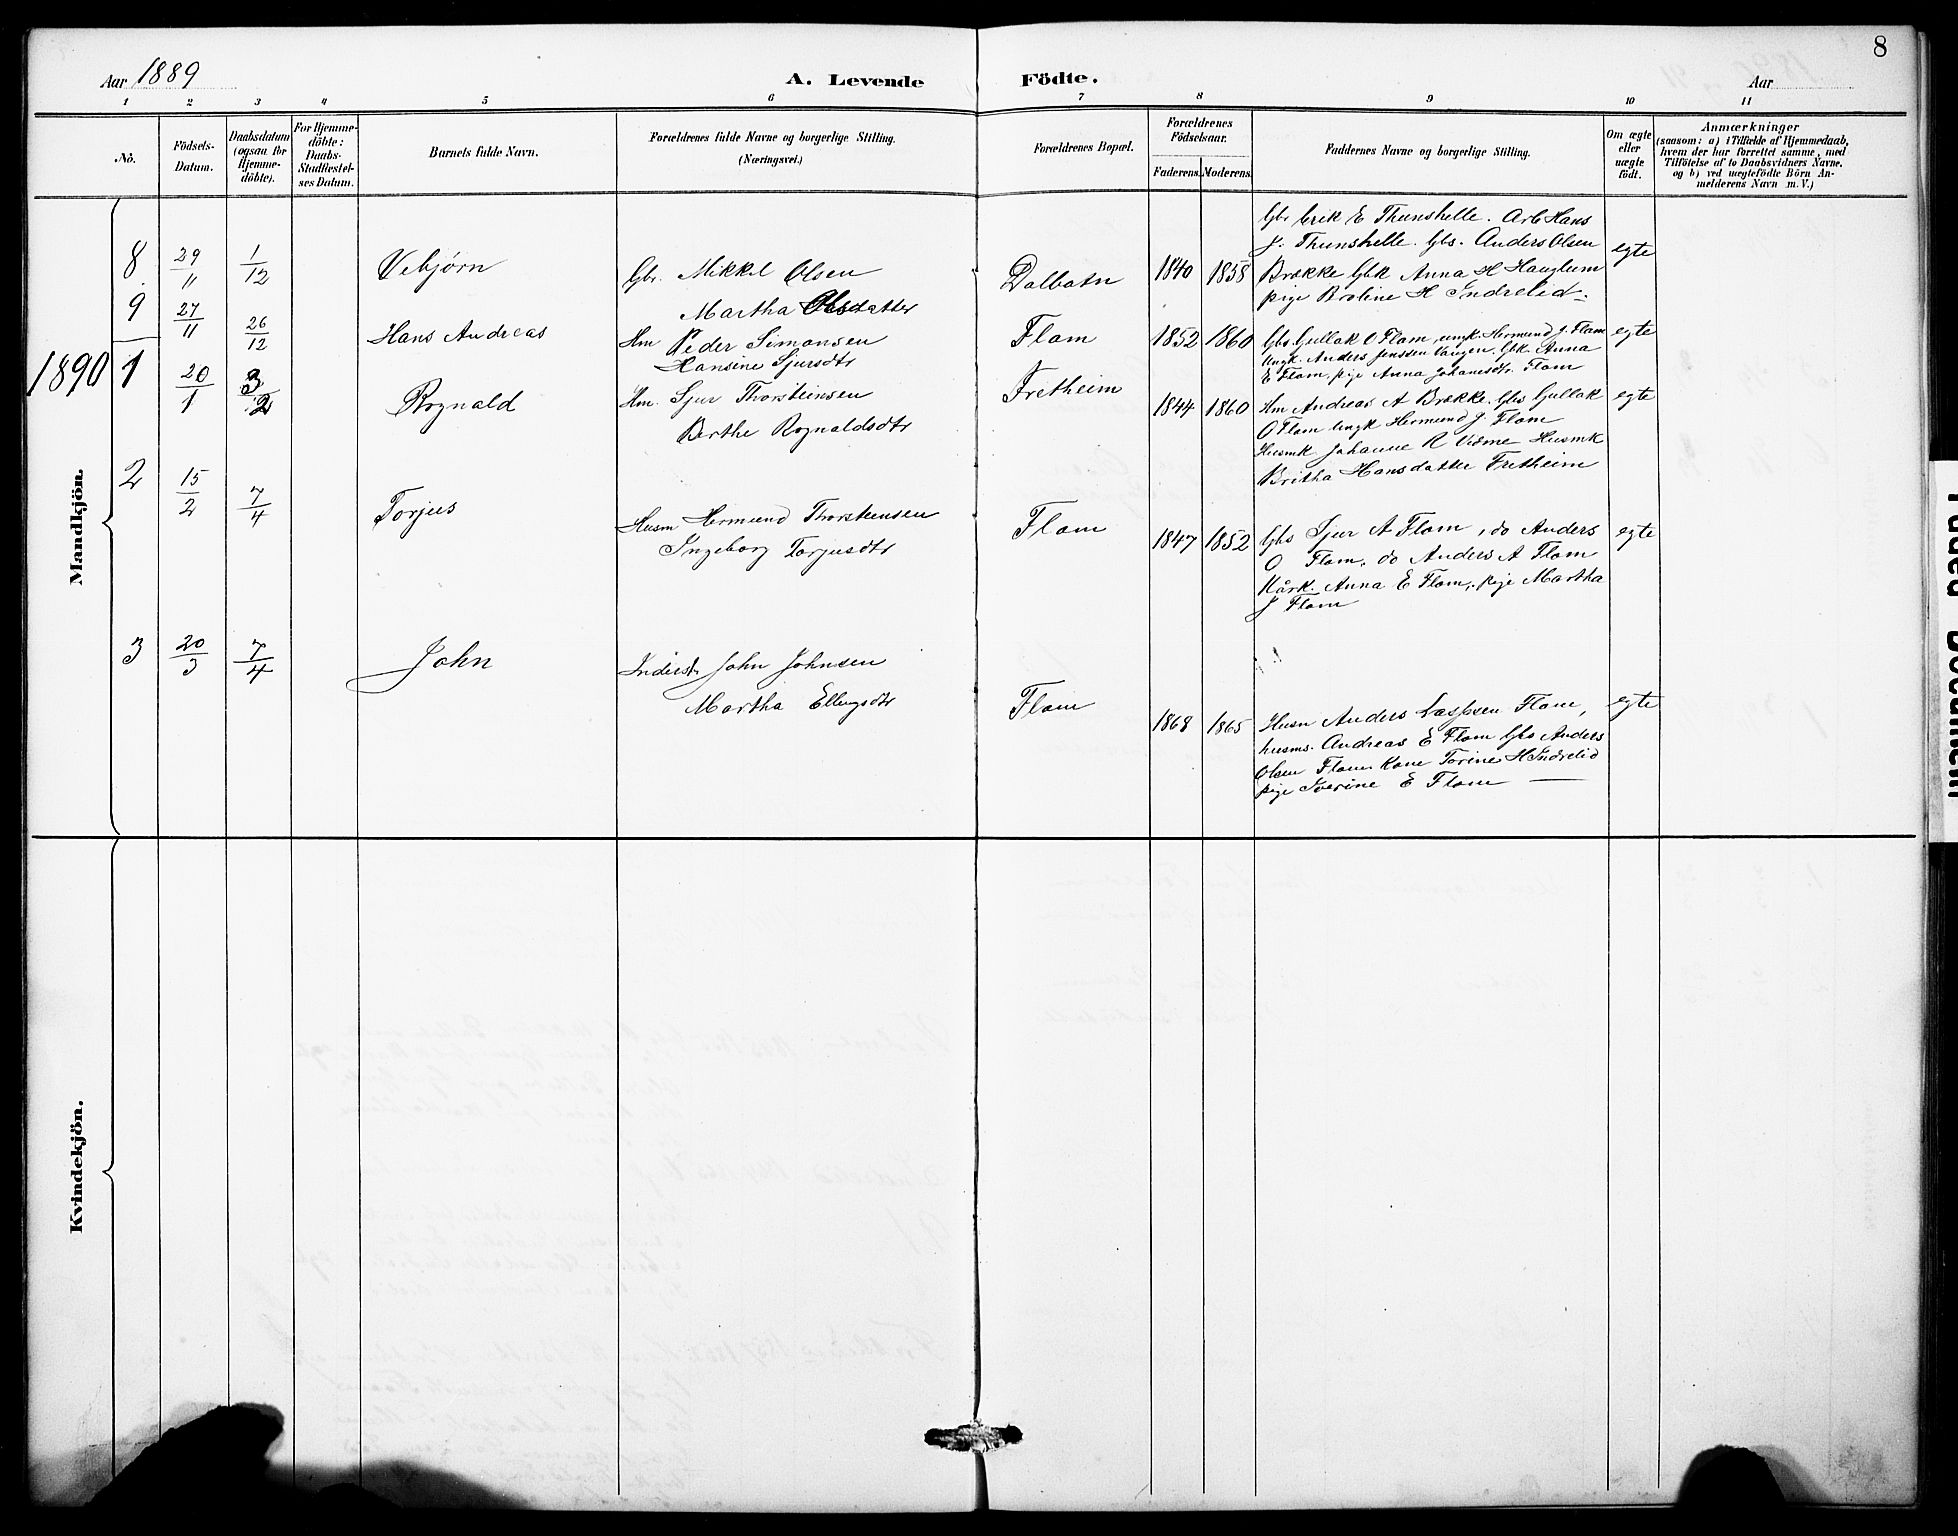 8
Aar 1889
A. Levende Födte.
Aar
1 2 3 4 5 6 7 8 9 10 11
No.
Födsels-Datum.
Daabsdatum (ogsaa for Hjemme-döbte).
For Hjemme-döbte: Daabs-Stadfestel-ses Datum.
Barnets fulde Navn.
Forældrenes fulde Navne og borgerlige Stilling. (Næringsvei.)
Forældrenes Bopæl.
Forældrenes Födselsaar.
Faderens. Moderens.
Faddernes Navne og borgerlige Stilling.
Om ægte eller uægte födt.
Anmærkninger
(saasom: a) i Tilfælde af Hjemmedaab,
hvem der har forrettet samme, med
Tilföielse af to Daabsvidners Navne.
og b) ved uægtefödte Börn An-
melderens Navn m. V.)
Mandkjön.
8 29/11 1/12 Vebjørn Gbr. Mikkel Olsen
Martha Olsdatter
Dalbotn 1840 1858
Gbr Erik E Thunshelle. Arb Hans
J. Thunshelle. Gbs. Anders Olsen
Brække Gbk Anna H Hauglum
pige Broline H Indrelid.
egte
9 27/11 26/12 Hans Andreas Hm Peder Simonsen
Hansine Sjursdtr
Flam 1852 1860
Gbs Gullak O Flam, ungk. Hermund J. Flam
Ungk. Anders Jenssen Vangen. Gbk Anna
E Flam, pige Anna Johannsdtr. Flam
egte
1890
1 20/1 3/2 Rognald Hm. Sjur Thorsteinsen
Berthe Rognaldsdtr
Fretheim 1844 1860
Hm Andreas A Brække. Gbs Gullak
O Flam Ungk Hermund J. Flam
Husmk Johanne R Vidme Husmk
Britha Hansdatter Fretheim
egte
2 15/2 7/4 Torjus Husm Hermund Thorsteinsen
Ingeborg Torjusdtr
Flam 1847 1852
Gbs Sjur A Flam, do Anders
O Flam, do Anders A Flam
Kårk. Anna E Flam, pige Martha
J Flam
egte
3 20/3 7/4 John Inderst John Johnsen
Martha Ellingsdtr
Flam 1868 1865
Husm Anders Lasssen Flam,
husms. Andreas E Flam Gbs Anders
Olsen Flam Kone Torine H Indrelid
pige Sverine E Flam
egte
Kvindekjön.